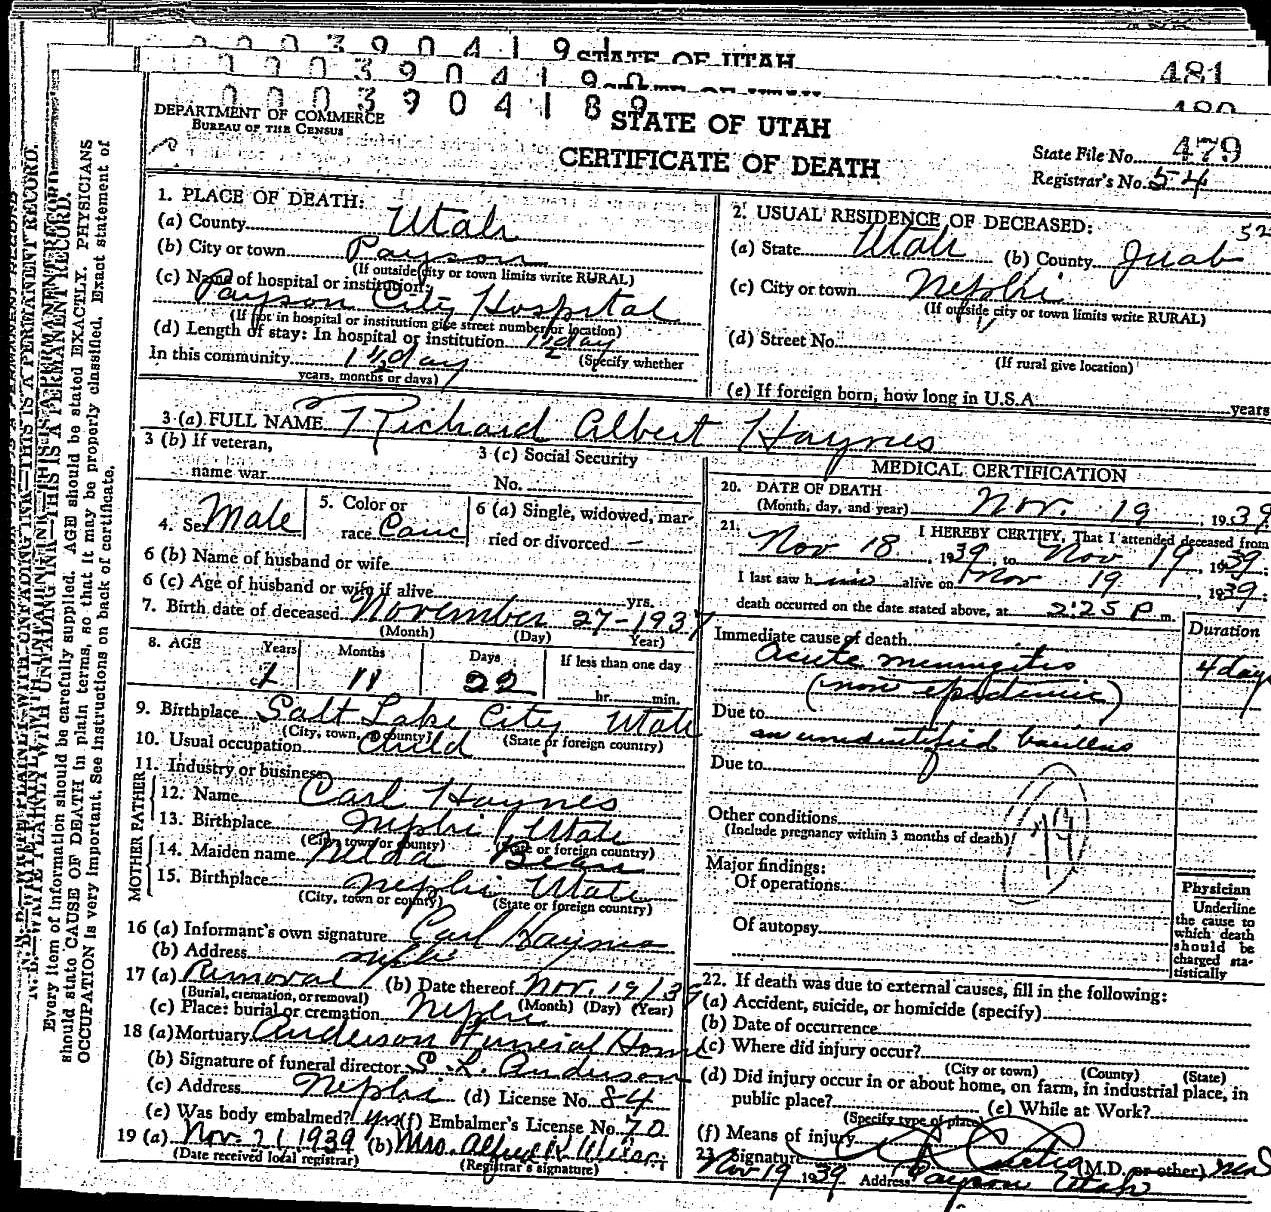 0003904191 STATE OF UTAH 481
0003904190 STATE OF UTAH 480
0003904189
DEPARTMENT OF COMMERCE
BUREAU OF THE CENSUS
STATE OF UTAH
CERTIFICATE OF DEATH
State File No. 479
Registrar's No. 54
N. B.—WRITE PLAINLY WITH UNFADING INK—THIS IS A PERMANENT RECORD.
Every item of information should be carefully supplied. AGE should be stated EXACTLY. PHYSICIANS
should state CAUSE OF DEATH in plain terms, so that it may be properly classified. Exact statement of
OCCUPATION is very important. See instructions on back of certificate.
1. PLACE OF DEATH:
(a) County Utah
(b) City or town Payson
(If outside city or town limits write RURAL)
(c) Name of hospital or institution:
Payson City Hospital
(If not in hospital or institution give street number or location)
(d) Length of stay: In hospital or institution 1½ day
(Specify whether
In this community 1½ day
years, months or days)
2. USUAL RESIDENCE OF DECEASED: 52
(a) State Utah (b) County Juab
(c) City or town Nephi
(If outside city or town limits write RURAL)
(d) Street No.
(If rural give location)
(e) If foreign born, how long in U.S.A. years
3 (a) FULL NAME Richard Albert Haynes
3 (b) If veteran,
name war
3 (c) Social Security
No.
4. Sex Male
5. Color or
race Cauc
6 (a) Single, widowed, mar-
ried or divorced —
6 (b) Name of husband or wife
6 (c) Age of husband or wife if alive yrs.
7. Birth date of deceased November 27-1937
(Month) (Day) Year)
8. AGE Years Months Days If less than one day
1 11 22 hr. min.
9. Birthplace Salt Lake City Utah
(City, town, or county) (State or foreign country)
10. Usual occupation Child
11. Industry or business
FATHER
12. Name Carl Haynes
13. Birthplace Nephi Utah
(City, town or county) (State or foreign country)
MOTHER
14. Maiden name Nelda
15. Birthplace Nephi Utah
(City, town or county) (State or foreign country)
16 (a) Informant's own signature Carl Haynes
(b) Address Nephi
17 (a) Removal (b) Date thereof Nov. 19/39
(Burial, cremation, or removal) (Month) (Day) (Year)
(c) Place: burial or cremation Nephi
18 (a) Mortuary Anderson Funeral Home
(b) Signature of funeral director S. L. Anderson
(c) Address Nephi (d) License No. 84
(e) Was body embalmed? yes (f) Embalmer's License No. 70
19 (a) Nov. 21 1939 (b) Mrs. Alfred K
(Date received local registrar) (Registrar's signature)
MEDICAL CERTIFICATION
20. DATE OF DEATH
(Month, day, and year) Nov. 19, 1939
21. I HEREBY CERTIFY, That I attended deceased from
Nov 18, 1939, to Nov 19, 1939;
I last saw him alive on Nov 19 1939;
death occurred on the date stated above, at 2:25 P m.
Immediate cause of death Duration
Acute meningitis 4 days
(non epidemic)
Due to
an unidentified bacillus
Due to
Other conditions
(Include pregnancy within 3 months of death)
Major findings:
Of operations
Of autopsy
Physician
Underline
the cause to
which death
should be
charged sta-
tistically
22. If death was due to external causes, fill in the following:
(a) Accident, suicide, or homicide (specify)
(b) Date of occurrence
(c) Where did injury occur?
(City or town) (County) (State)
(d) Did injury occur in or about home, on farm, in industrial place, in
public place? (e) While at Work?
(Specify type of place)
(f) Means of injury
23. Signature Curtis (M.D. or other) MD
Nov 19 1939 Address Payson Utah